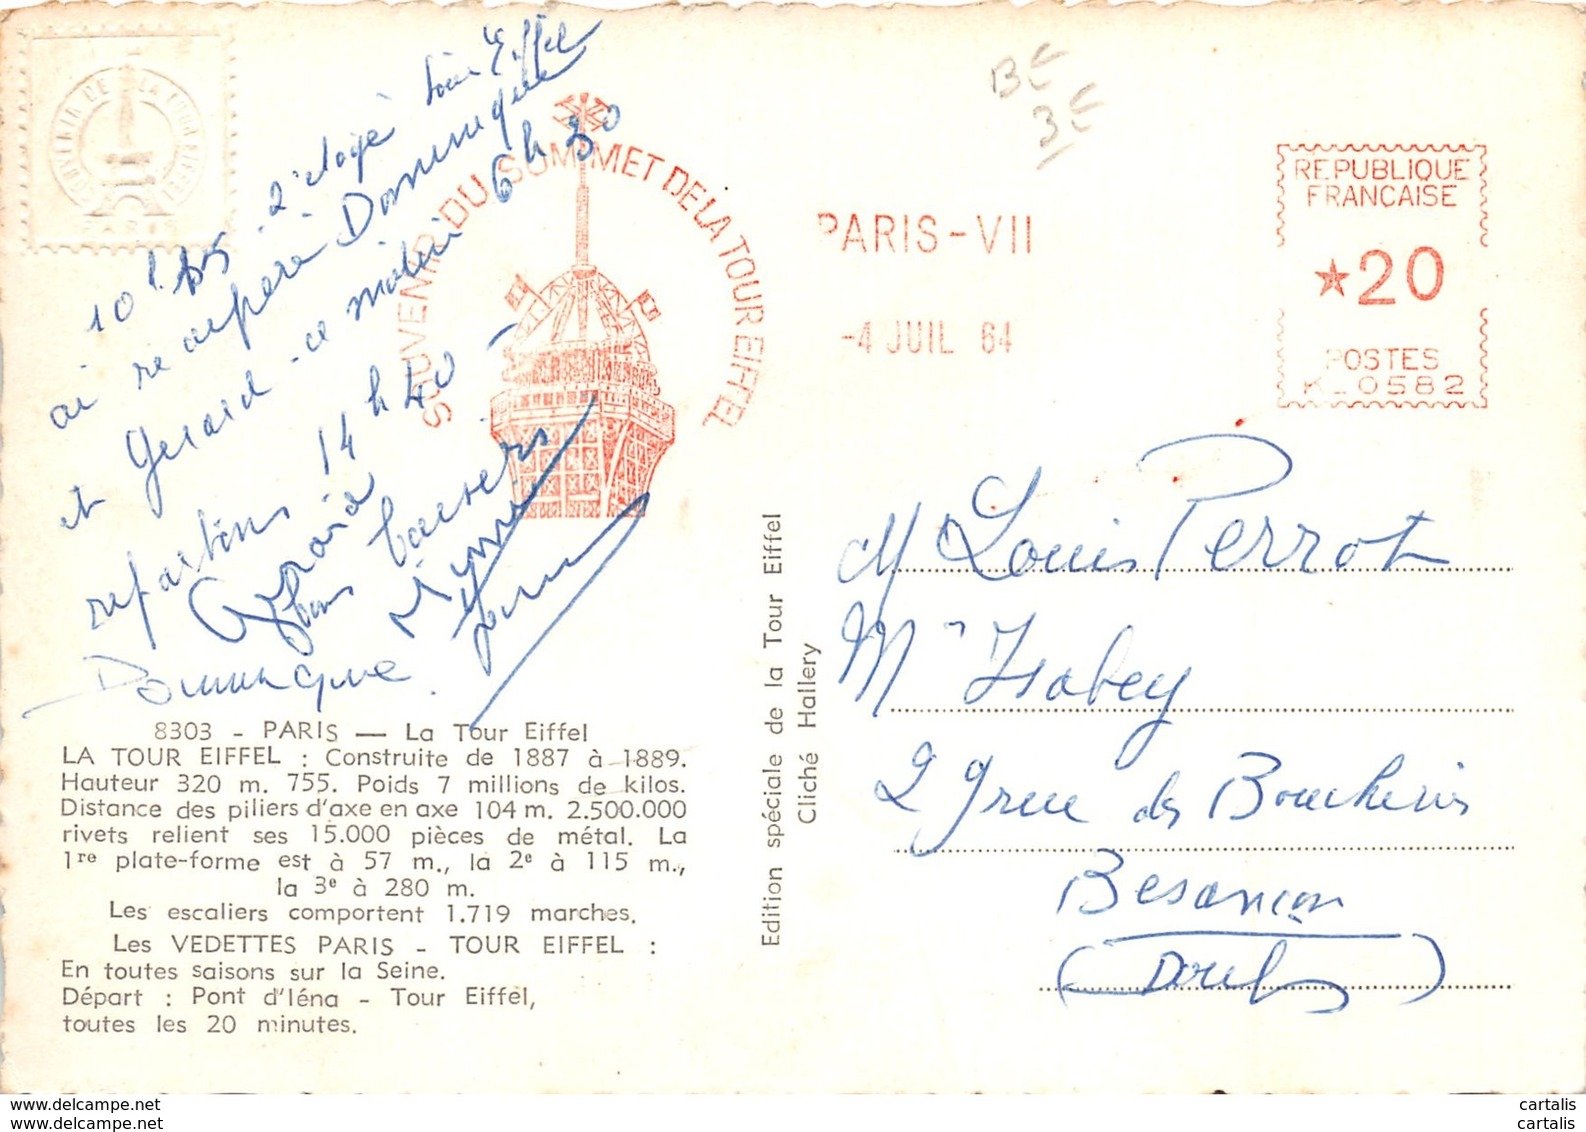 SOUVENIR DE LA TOUR EIFFEL
PARIS
10h 45 2e étage Tour Eiffel
ai récupéré Dominique
et Gérard ce matin 6h30
repartons 14h40 -
bons baisers
Dominique
SOUVENIR DU SOMMET DE LA TOUR EIFFEL
8303 - PARIS — La Tour Eiffel
LA TOUR EIFFEL : Construite de 1887 à 1889.
Hauteur 320 m. 755. Poids 7 millions de kilos.
Distance des piliers d'axe en axe 104 m. 2.500.000
rivets relient ses 15.000 pièces de métal. La
1re plate-forme est à 57 m., la 2e à 115 m.,
la 3e à 280 m.
Les escaliers comportent 1.719 marches.
Les VEDETTES PARIS - TOUR EIFFEL :
En toutes saisons sur la Seine.
Départ : Pont d'Iéna - Tour Eiffel,
toutes les 20 minutes.
Edition spéciale de la Tour Eiffel
Cliché Hallery
BE
3E
PARIS-VII
-4 JUIL 64
REPUBLIQUE
FRANCAISE
★20
POSTES
K_0582
M Louis Perrot
M Isabey
29 rue des Boucheries
Besançon
(Doubs)
www.cartalis.com
www.cartalis.com
cartalis
cartalis